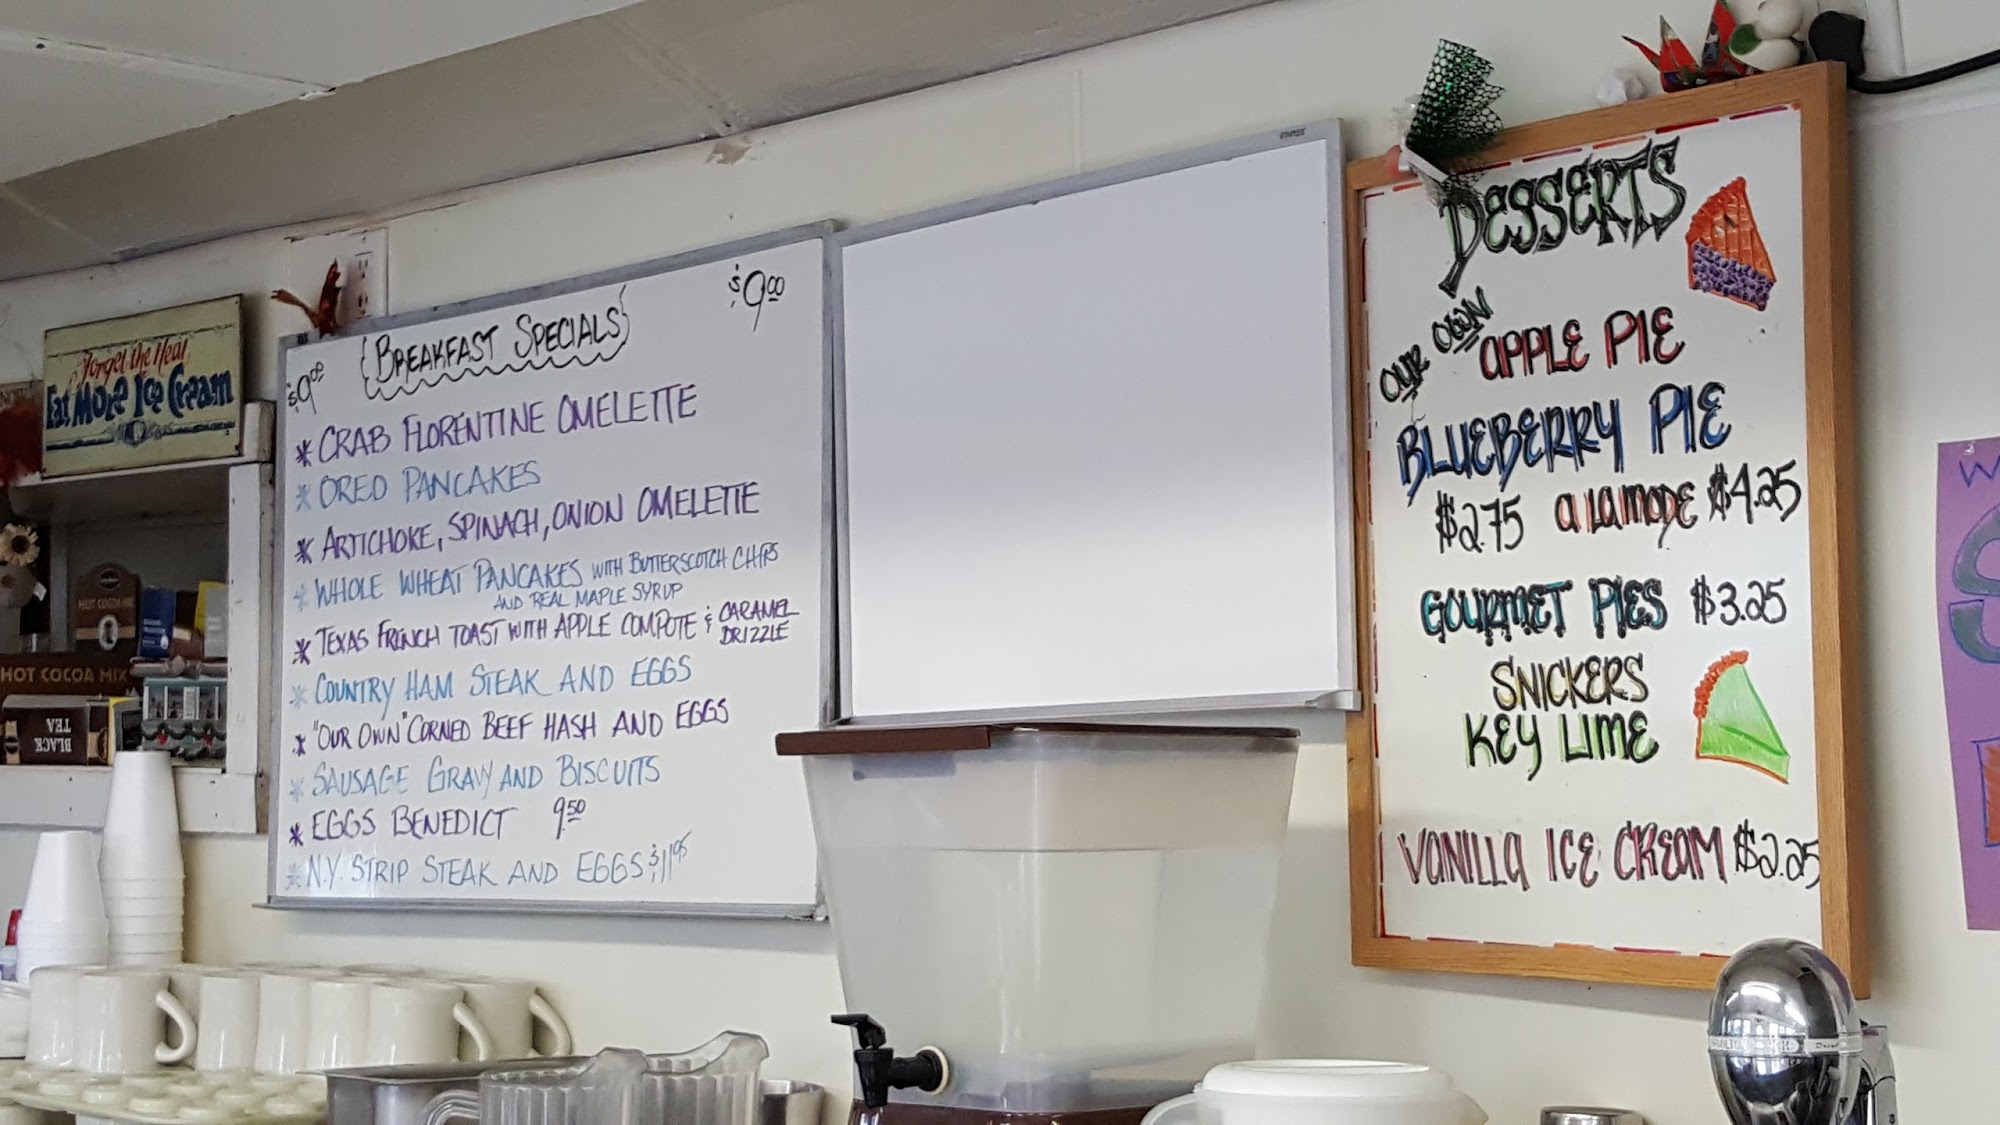 Forget the Heat
Eat More Ice Cream
HOT COCOA MIX
HOT COCOA MIX
BLACK TEA
$9.00 BREAKFAST SPECIALS $9.00
* CRAB FLORENTINE OMELETTE
* OREO PANCAKES
* ARTICHOKE, SPINACH, ONION OMELETTE
* WHOLE WHEAT PANCAKES WITH BUTTERSCOTCH CHIPS
AND REAL MAPLE SYRUP
* TEXAS FRENCH TOAST WITH APPLE COMPOTE & CARAMEL
DRIZZLE
* COUNTRY HAM STEAK AND EGGS
* "OUR OWN" CORNED BEEF HASH AND EGGS
* SAUSAGE GRAVY AND BISCUITS
* EGGS BENEDICT 9.50
* N.Y. STRIP STEAK AND EGGS $11.95
STAPLES
DESSERTS
OUR OWN
APPLE PIE
BLUEBERRY PIE
$2.75 A LA MODE $4.25
GOURMET PIES $3.25
SNICKERS
KEY LIME
VANILLA ICE CREAM $2.25
HAMILTON BEACH
W
S